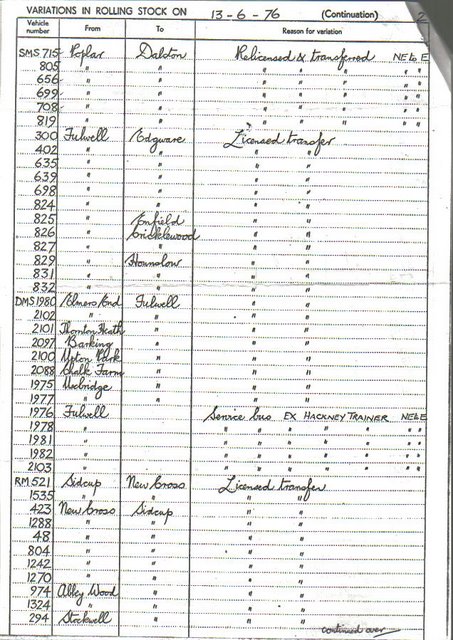 VARIATIONS IN ROLLING STOCK ON 13-6-76 (Continuation) 2
Vehicle number From To Reason for variation
SMS 715 Poplar Dalston Relicensed & transferred NE to E
805 " " " " " " "
656 " " " " " " "
699 " " " " " " "
708 " " " " " " "
819 " " " " " " "
300 Fulwell Edgware Licensed transfer
402 " " " "
635 " " " "
639 " " " "
698 " " " "
824 " " " "
825 " Enfield " "
826 " Cricklewood " "
827 " " " "
829 " Hounslow " "
831 " " " "
832 " " " "
DMS 1980 Elmers End Fulwell " "
2102 " " " "
2101 Thornton Heath " " "
2097 Barking " " "
2100 Upton Park " " "
2088 Chalk Farm " " "
1975 Uxbridge " " "
1977 " " " "
1976 Fulwell Service bus EX HACKNEY TRAINER NE to E
1978 " " " " " " " "
1981 " " " " " " " "
1982 " " " " " " " "
2103 " " " " " " " "
RM 521 Sidcup New Cross Licensed transfer
1535 " " " "
423 New Cross Sidcup " "
1288 " " " "
48 " " " "
804 " " " "
1242 " " " "
1270 " " " "
974 Abbey Wood " " "
1324 " " " "
294 Stockwell " " "
continued over